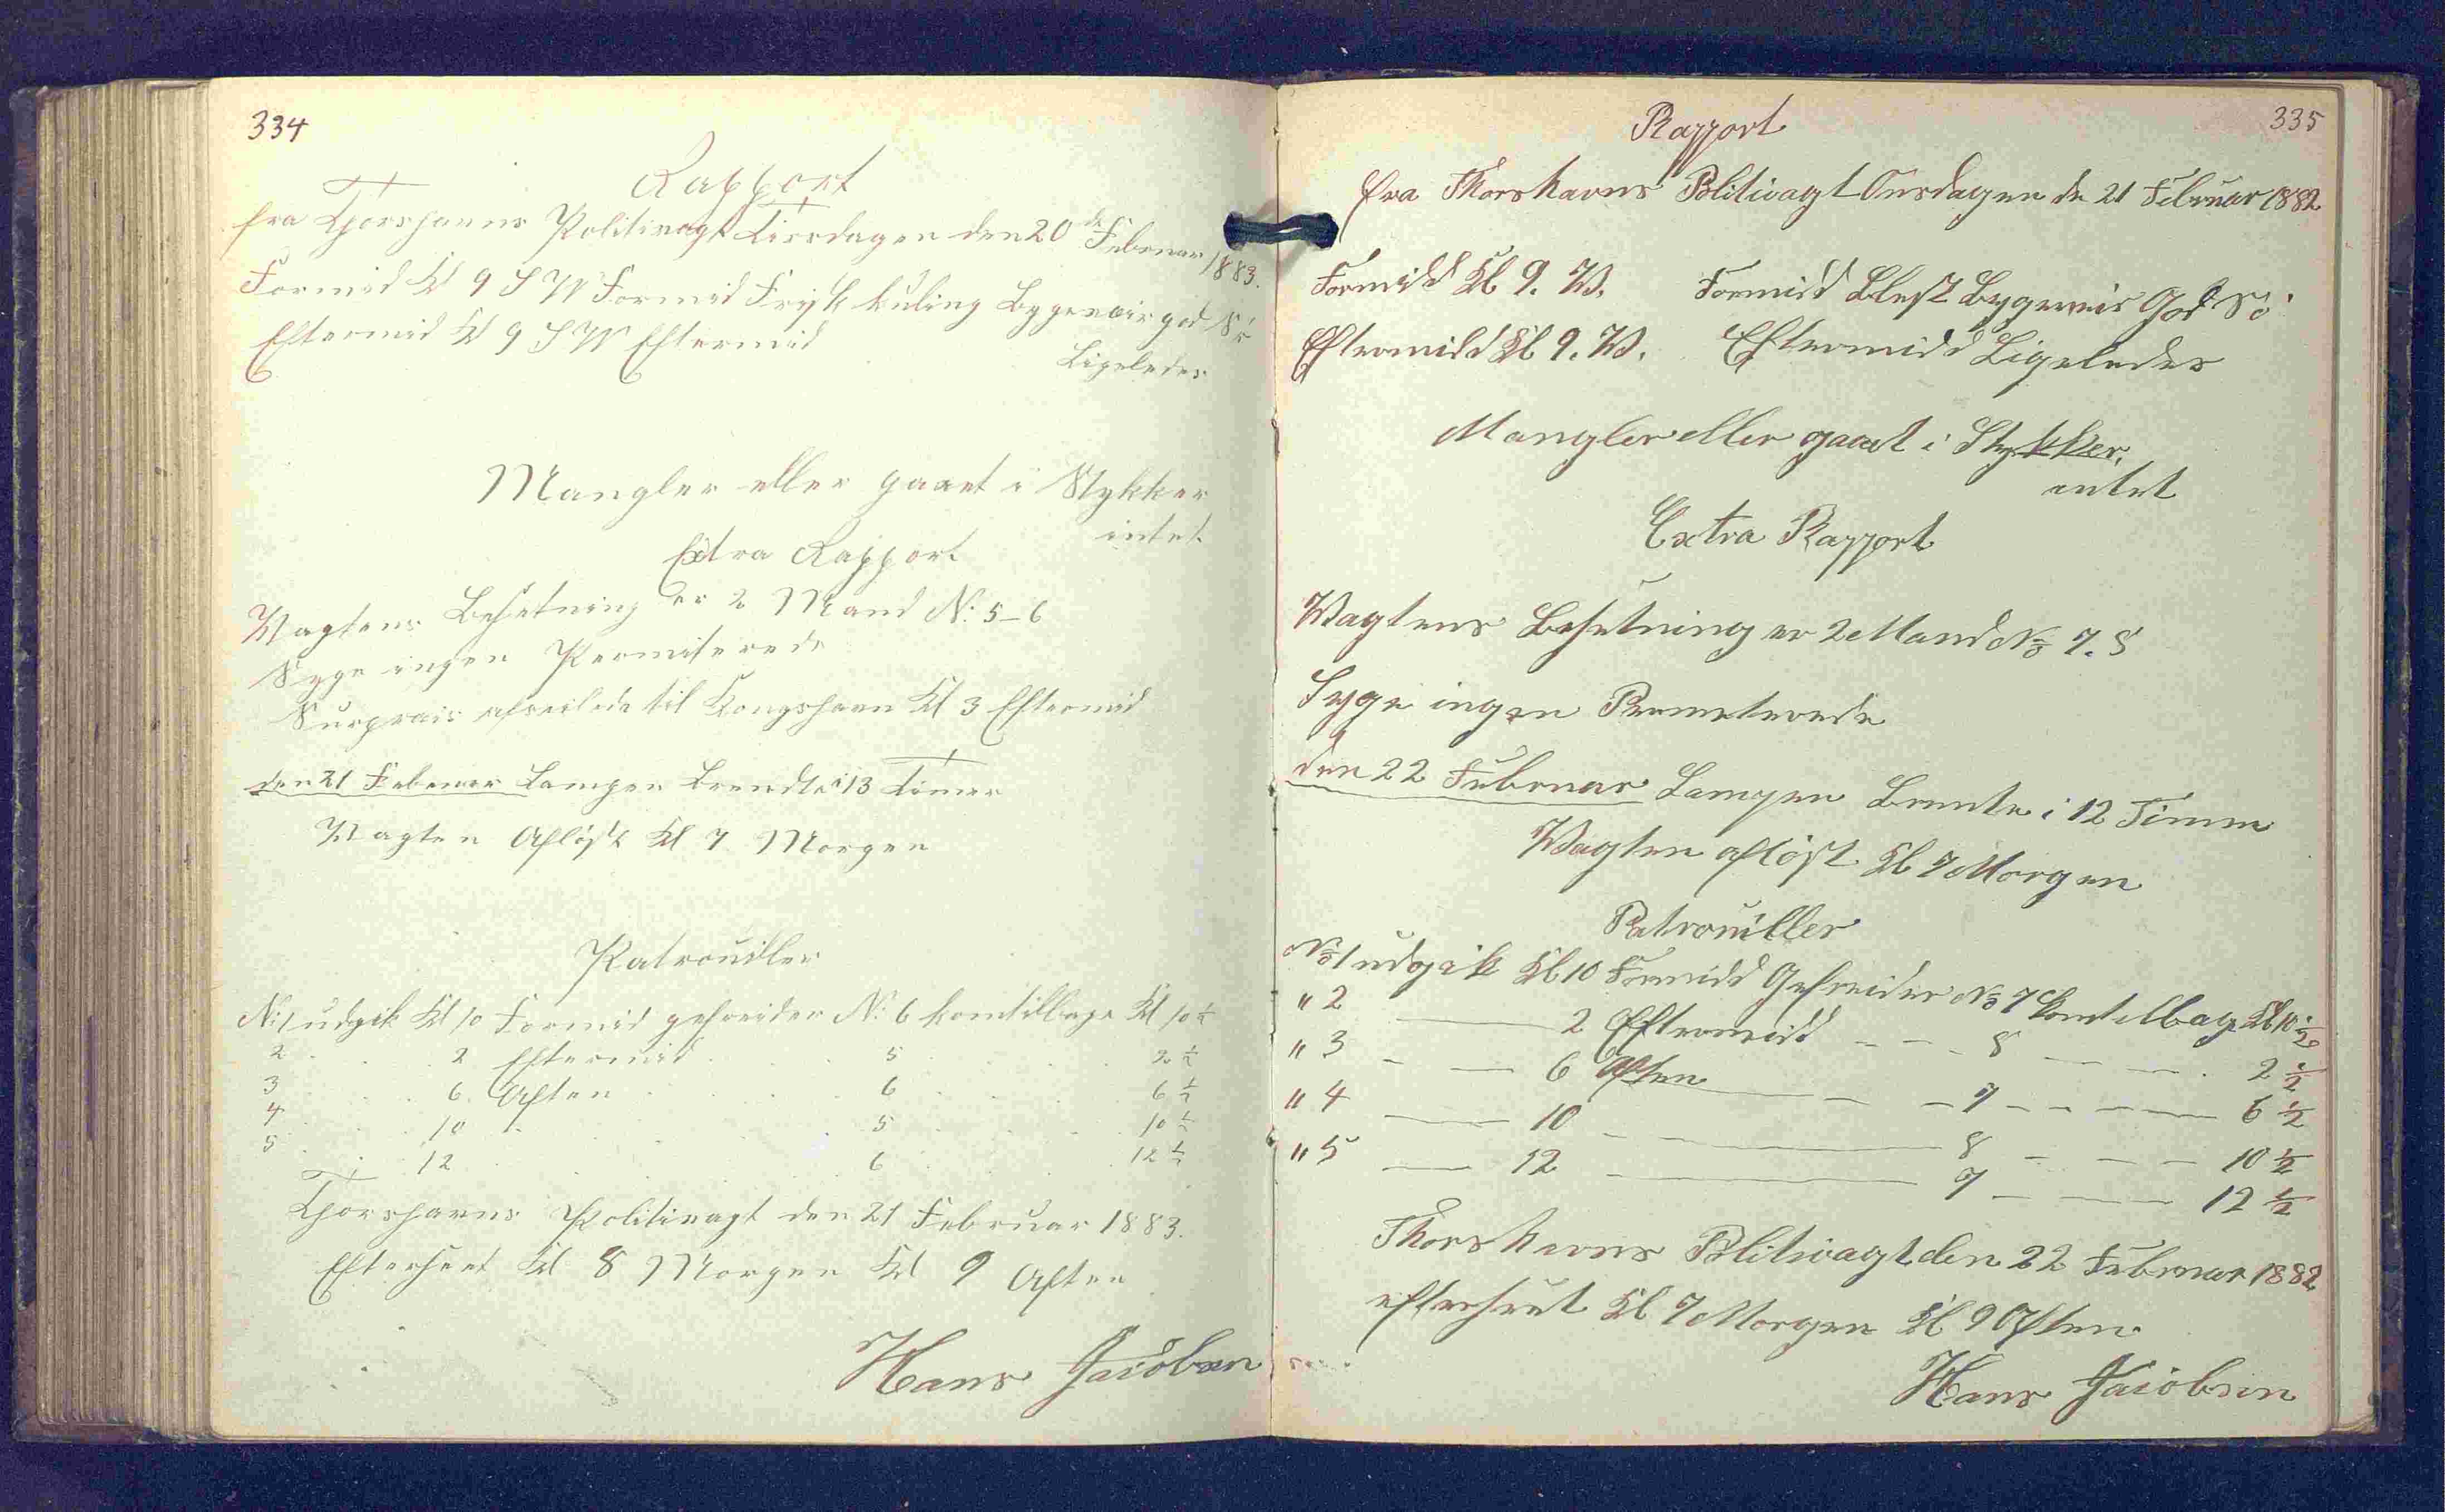 334
Rapport
fra Thorshavns Politivagt Tirsdagen den 20de Februar 1883.
Formid Kl 9 S W Formid Frisk kuling Bygeveir god Sö
Eftermid Kl 9 S W Eftermid
Ligeledes
Mangler eller gaaet i Stykker
intet
Extra Rapport
Wagtens Besetning er 2 Mand N: 5-6
Syge ingen Permiterede
Surprais afseilede til Kongshavn Kl 3 Eftermid
den 21 Februar Lampen brendte i 13 Timer
Wagten Aflöst Kl 7 Morgen
Patrouiller
N: 1 udgik Kl 10 Formid gefreider N: 6 kom tilbage Kl 10 1/2
2 . . 2 Eftermid . . 5 . . 2 1/2
3 . . 6 Aften . . 6 . . 6 1/2
4 . . 10 . . 5 . . 10 1/2
5 . . 12 . . 6 . . 12 1/2
Thorshavns Politivagt den 21 Februar 1883.
Efterseet Kl 8 Morgen Kl 9 Aften
Hans Jacobsen
335
Rapport
fra Thorshavns Politivagt Onsdagen de 21 Februar 1882
Formidd Kl 9. W. Formidd Blest Bygeveir God Sö
Eftermidd Kl 9. W. Eftermidd Ligeledes
Mangler eller gaaet i Stykker.
intet
Extra Rapport
Wagtens Besetning er 2 Mand No 7. 8
Syge ingen Permeterede
den 22 Februar Lampen Brente i 12 Timer
Wagten aflöst Kl 7 Morgen
Patrouiller
No 1 udgik Kl 10 Formidd Gefreider No 7 kom tilbage Kl 10 1/2
" 2 — 2 Eftermidd - - - 8 — - — . 2 1/2
" 3 - — 6 Aften — — - 7 - - - — 6 1/2
" 4 — 10 - — 8 - — - 10 1/2
" 5 — 12 — 7 — — 12 1/2
Thorshavns Politivagt den 22 Februar 1882
efterseet Kl 7 Morgen Kl 9 Aften
Hans Jacobsen